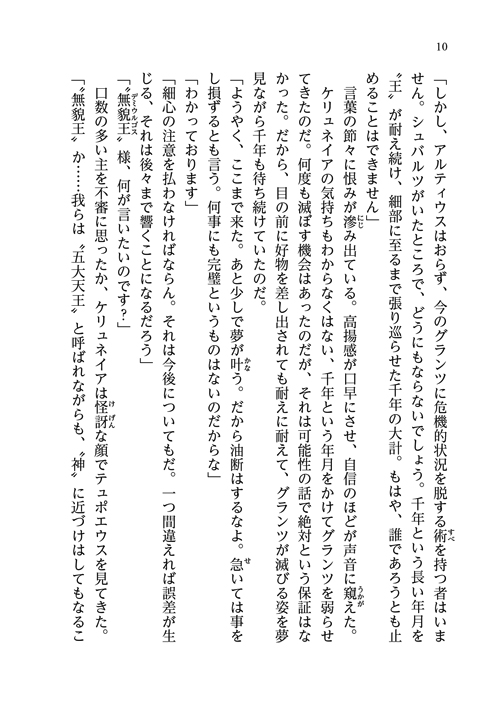 10
「しかし、アルティウスはおらず、今のグランツに危機的状況を脱する術を持つ者はいま
せん。シュバルツがいたところで、どうにもならないでしょう。千年という長い年月を
〝王〟が耐え続け、細部に至るまで張り巡らせた千年の大計。もはや、誰であろうとも止
めることはできません」
言葉の節々に恨みが滲み出ている。高揚感が口早にさせ、自信のほどが声音に窺えた。
ケリュネイアの気持ちもわからなくはない、千年という年月をかけてグランツを弱らせ
てきたのだ。何度も滅ぼす機会はあったのだが、それは可能性の話で絶対という保証はな
かった。だから、目の前に好物を差し出されても耐えに耐えて、グランツが滅びる姿を夢
見ながら千年も待ち続けていたのだ。
「ようやく、ここまで来た。あと少しで夢が叶う。だから油断はするなよ。急いては事を
し損ずるとも言う。何事にも完璧というものはないのだからな」
「わかっております」
「細心の注意を払わなければならん。それは今後についてもだ。一つ間違えれば誤差が生
じる、それは後々まで響くことになるだろう」
「〝無貌王〟様、何が言いたいのです？」
口数の多い主を不審に思ったか、ケリュネイアは怪訝な顔でテュポエウスを見てきた。
「〝無貌王〟か……我らは〝五大天王〟と呼ばれながらも、〝神〟に近づけはしてもなるこ